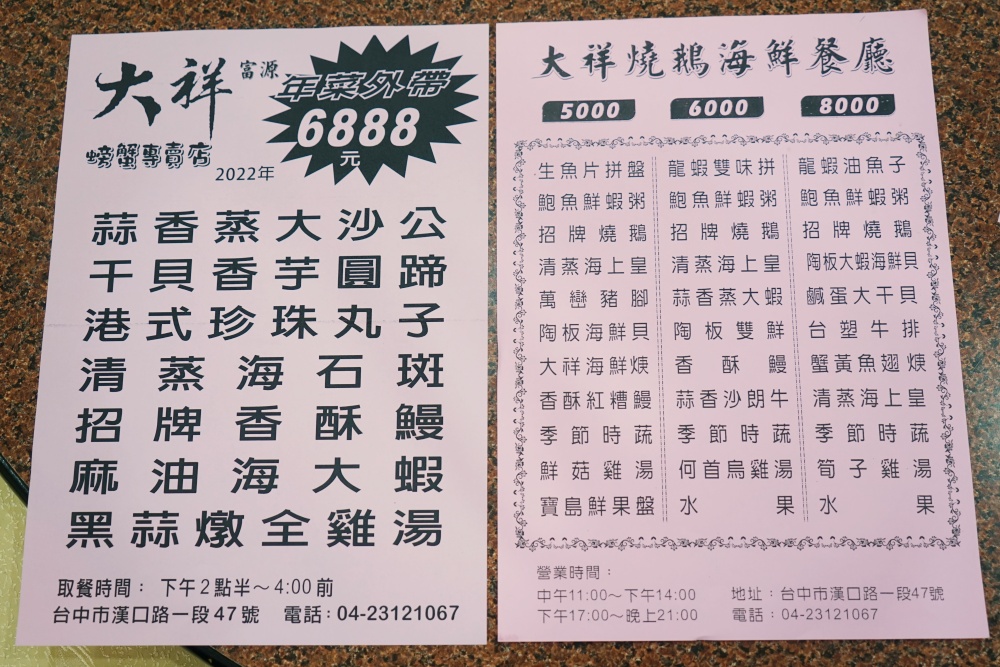 大祥
富源
螃蟹專賣店
2022年
年菜外帶
6888
元
蒜香蒸大沙公
干貝香芋圓蹄
港式珍珠丸子
清蒸海石斑
招牌香酥鰻
麻油海大蝦
黑蒜燉全雞湯
取餐時間： 下午2點半～4:00前
台中市漢口路一段47號 電話：04-23121067
大祥燒鵝海鮮餐廳
5000
生魚片拼盤
鮑魚鮮蝦粥
招牌燒鵝
清蒸海上皇
萬巒豬腳
陶板海鮮貝
大祥海鮮焿
香酥紅糟鰻
季節時蔬
鮮菇雞湯
寶島鮮果盤
6000
龍蝦雙味拼
鮑魚鮮蝦粥
招牌燒鵝
清蒸海上皇
蒜香蒸大蝦
陶板雙鮮
香酥鰻
蒜香沙朗牛
季節時蔬
何首烏雞湯
水果
8000
龍蝦油魚子
鮑魚鮮蝦粥
招牌燒鵝
陶板大蝦海鮮貝
鹹蛋大干貝
台塑牛排
蟹黃魚翅焿
清蒸海上皇
季節時蔬
筍子雞湯
水果
營業時間：
中午11:00～下午14:00
下午17:00～晚上21:00
地址：台中市漢口路一段47號
電話：04-23121067